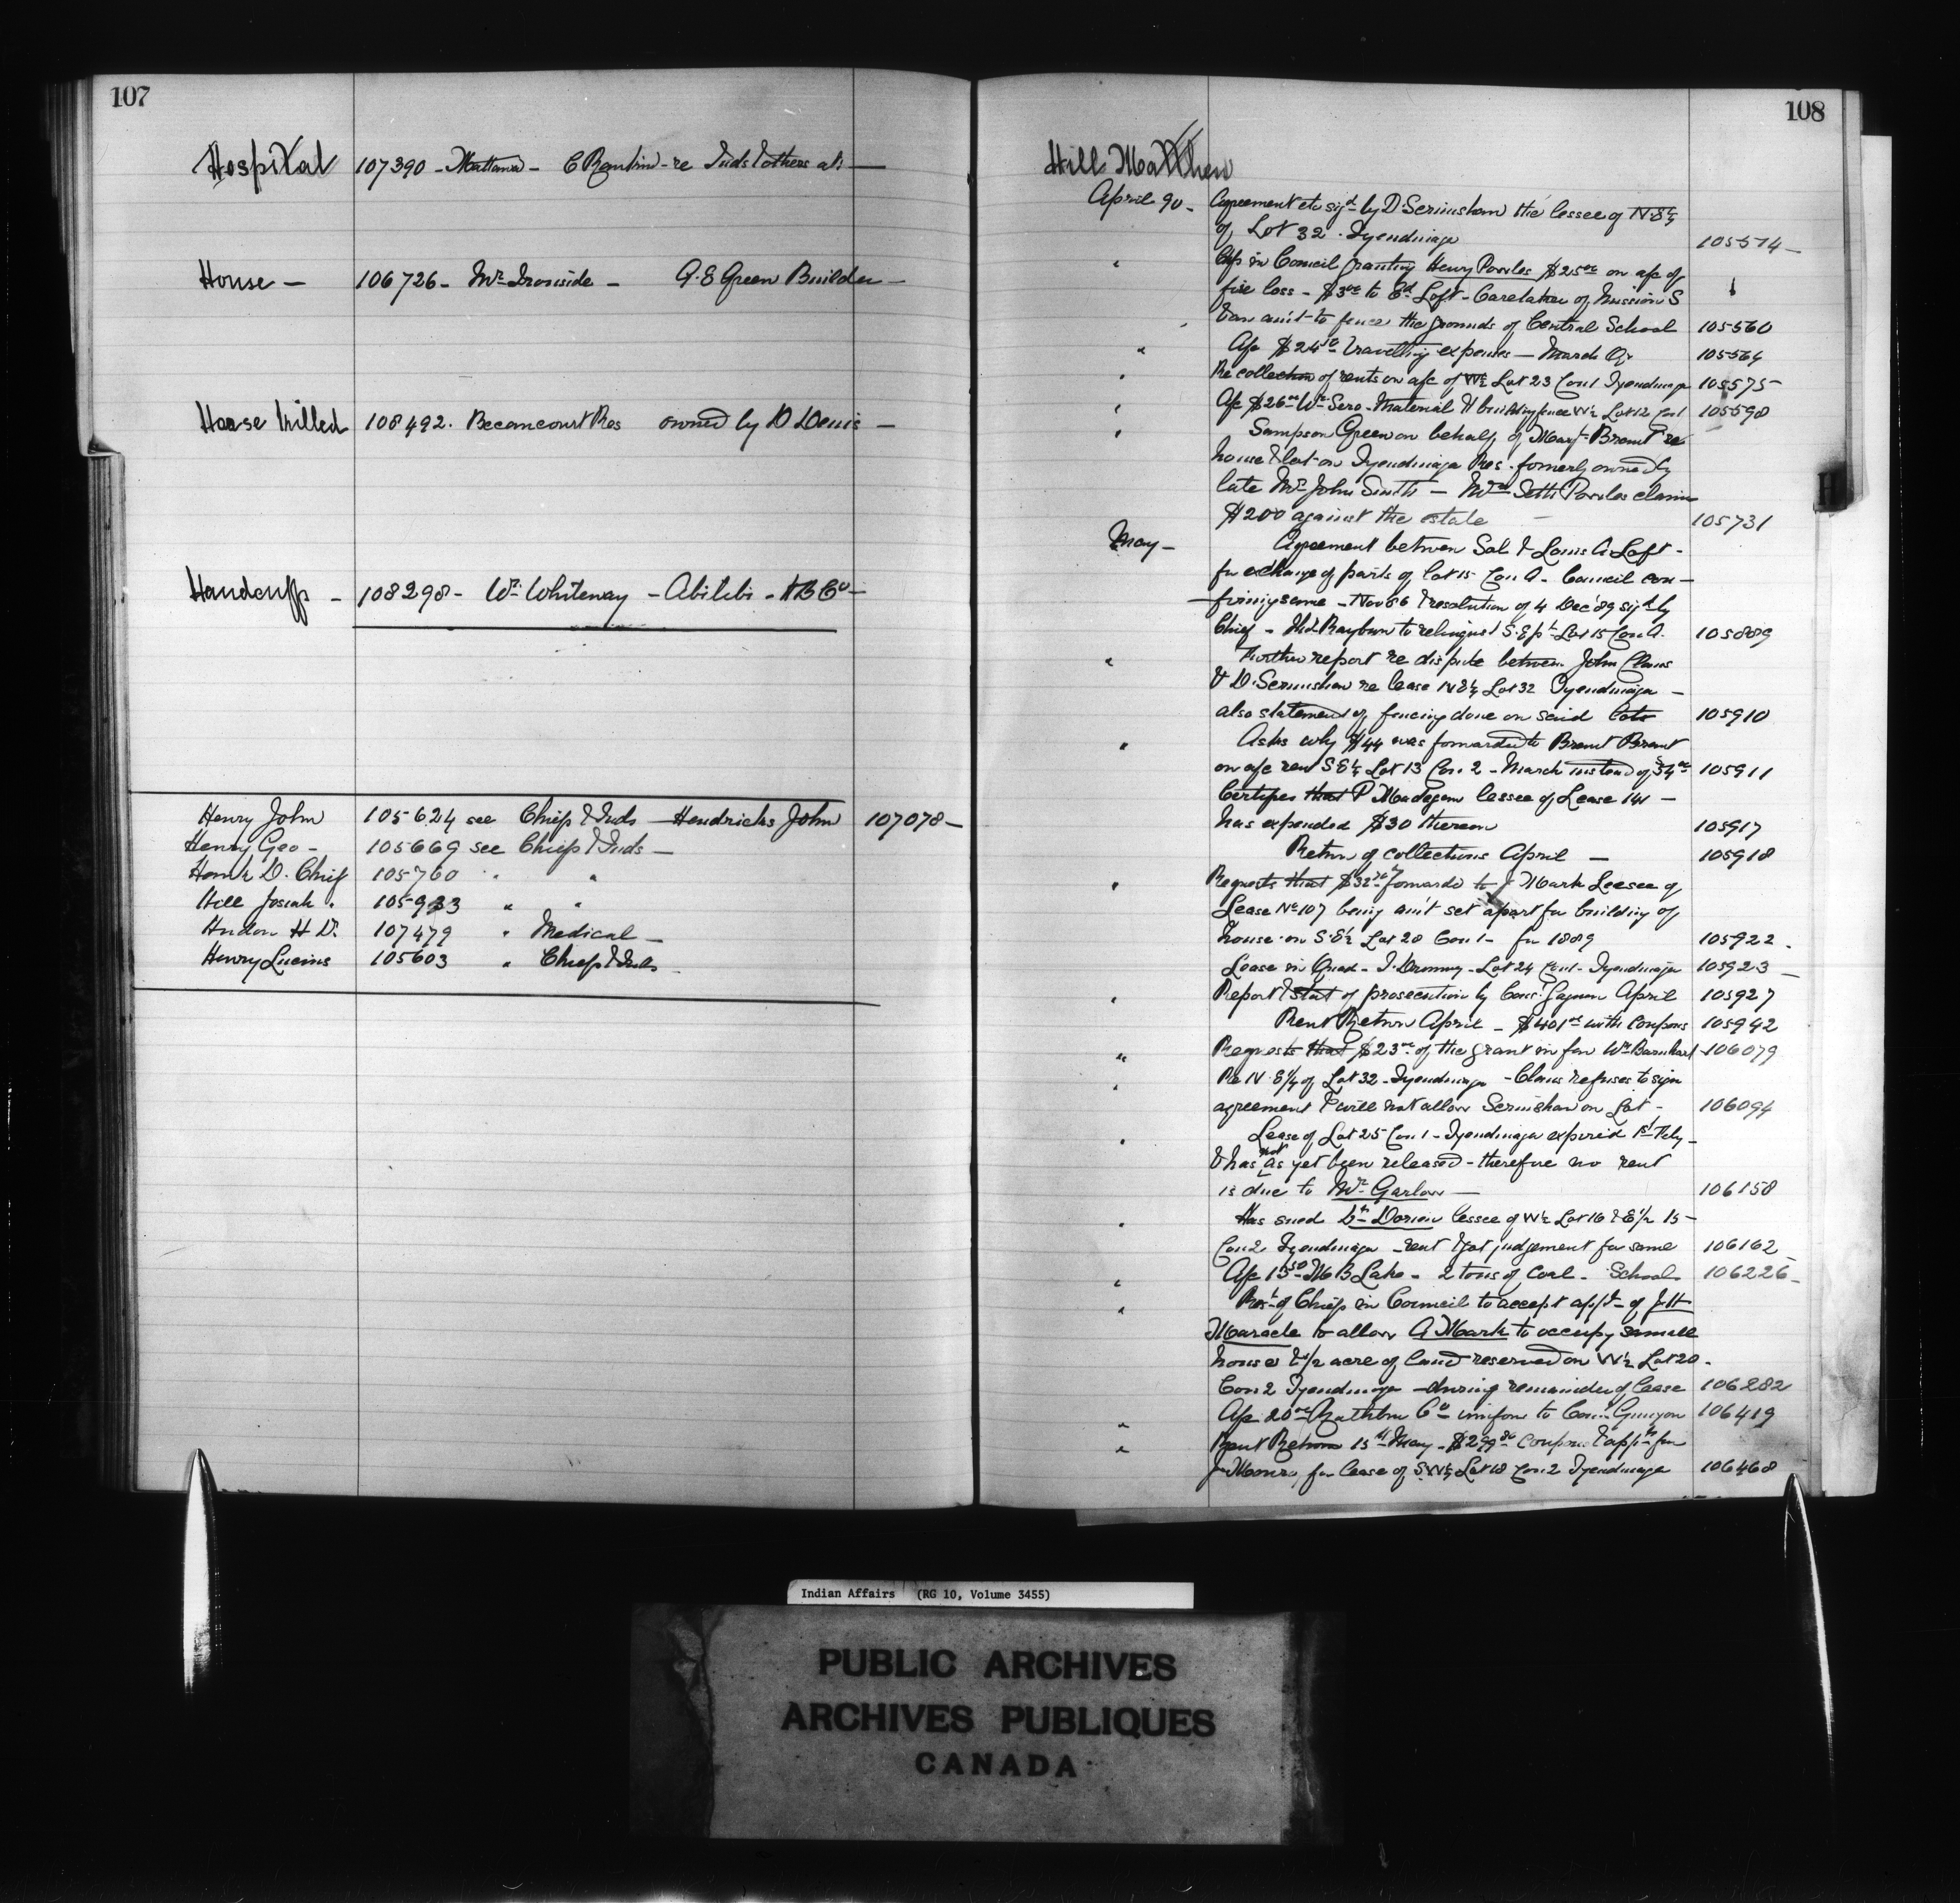 107
Hospital 107390 - Mattawa - C Rankin - re Inds & others at: —
House — 106726 - Mr Ironside - A. E Green Builder —
Horse Killed 108492. Becancourt Res owned by D Denis —
Handcuffs - 108298 - Wm Whiteway - Abitibi - H B Co —
Henry John 105624 see Chiefs & Inds — Hendricks John 107078 —
Henry Geo - 105669 see Chiefs & Inds —
D. Chief 105760 " "
Hill Josiah . 105933 " "
H Dr 107479 " Medical —
Henry Lucius 105603 " Chiefs & Inds
108
Hill Matthew
April 90 - Agreement etc sigd by D Serimshaw the lessee of N.E¼
of Lot 32 . Tyendinaga 105574 —
" Chfs in Council granting Henry Powles $25 00 on a/c of
fire loss - $3 00 to Ed Loft - Caretaker of Mission S
& an am't to fence the grounds of Central School 105560
" A/c $24 50 travelling expenses — March Qr 105564
" Re collection of rents on a/c of W½ Lot 23 Con 1 Tyendinaga 105575 -
" A/c $26 00 Wm Sero - Material & building fence W½ Lot 12 Con 1 105598
" Sampson Green on behalf of Margt Brant re
house & lot on Tyendinaga Res. formerly owned by
late Mr John Smith — Mrs Seth Powles claim
$200 against the estate — 105731
May — Agreement between Sol & Louis A Loft -
for exchange of parts of lot 15 Con A - Council con —
— firming same - Nov 86 & resolution of 4 Dec '89 sigd by
Chief - Hd Rayburn to relinquish S. E pt Lot 15 Con A. 105889
" Further report re dispute between John Claus
& D. Serimshaw re lease N E¼ Lot 32 Tyendinaga —
also statement of fencing done on said lots 105910
" Asks why $44 was forwarded to Brant Brant
on a/c rent S E¼ Lot 13 Con 2 - March instead of $34 00 105911
Certifies that P Madagan lessee of Lease 141 —
has expended $30 thereon 105917
Return of collections April — 105918
" Requests that $32 forwarded to J Mark Lessee of
Lease No 107 being am't set apart for building of
house on S. E½ Lot 20 Con 1 - for 1889 105922 .
Lease in Quad - T. Drummy - Lot 24 Con 1 - Tyendinaga 105923 —
" Report & Stat of prosecution by Cons: Gaynon April 105927
Rent Return April - $401 00 with Coupons 105942
" Requests that $23 00 of the grant in fav Wm Barnhart 106079
" Re N. E¼ of Lot 32 - Tyendinaga - Claus refuses to sign
agreement & will not allow Serimshaw on Lot - 106094
" Lease of Lot 25 Con 1 - Tyendinaga expired 1st Feby -
& has not as yet been released - therefore no rent
is due to Mr Garlow — 106158
" Has sued Dorion lessee of W½ Lot 16 & E½ 15 -
Con 2 Tyendinaga - rent & got judgement for same 106162
" A/c 13 50 M B Lake - 2 tons of Coal - School 106226 -
" Rest of Chiefs in Council to accept appt of J. H
Maracle to allow A Mark to occupy small
house & ½ acre of land reserved on W½ Lot 20 .
Con 2 Tyendinaga - during remainder of lease 106282
" A/c 20 00 Rathbun Co uniform to Con. Gunyon 106419
" Rent Return 15th May - $299 coupons & app'tn for
Jr Monro, for lease of S.W¼ Lot 18 Con 2 Tyendinaga 106468
H
Indian Affairs (RG 10, Volume 3455)
PUBLIC ARCHIVES
ARCHIVES PUBLIQUES
CANADA